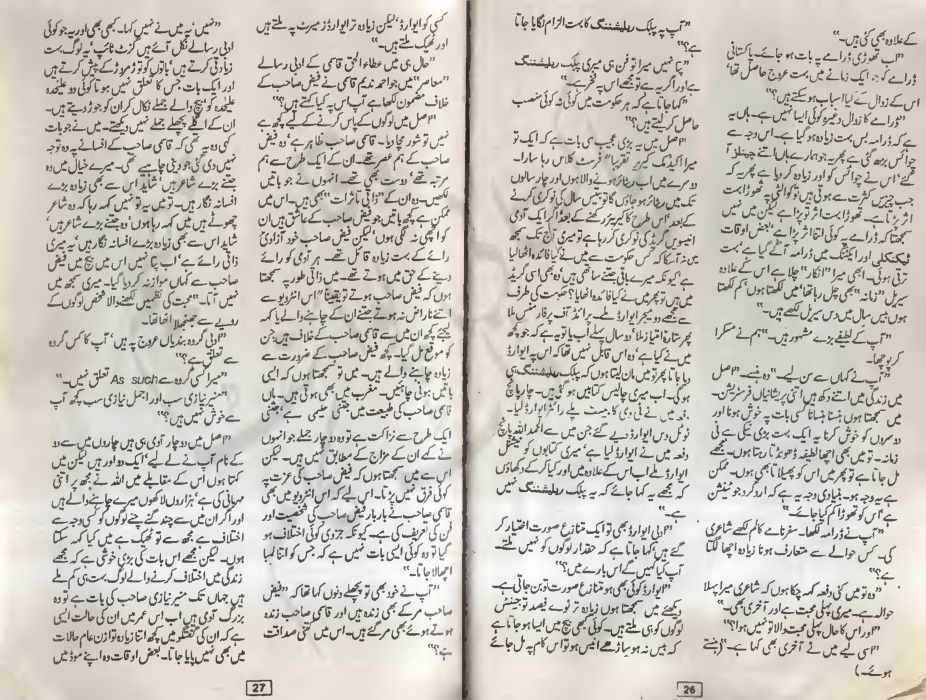 کے علاوہ بھی کئی ہیں۔"
"اب تھوڑی ڈرامے پہ بات ہو جائے۔ پاکستانی
ڈرامے کو ایک زمانے میں بہت عروج حاصل تھا'
اس کے زوال کے کیا اسباب ہو سکتے ہیں؟"
"ڈرامے کا زوال وغیرہ کوئی ایسا نہیں ہے۔ ہاں یہ
ہے کہ ڈرامہ بس بہت زیادہ ہو گیا ہے۔ اس وجہ سے
چوائس بڑھ گئی ہے پھر یہ جو ہمارے ہاں اتنے چینلز آ
گئے' اس نے چوائس کو اور زیادہ کر دیا ہے پھر یہ کہ
جب چیزیں کثرت سے ہوتی ہیں تو کوالٹی پہ تھوڑا بہت
اثر پڑتا ہے۔ تھوڑا بہت اثر تو پڑا ہے لیکن میں نہیں
سمجھتا کہ ڈرامے پہ کوئی اتنا اثر پڑا ہے' بعض اوقات
ٹیکنیکلی اور ایکٹنگ میں ڈرامہ آگے گیا ہے' بہت
ترقی ہوئی۔ ابھی میرا "انکار" چلا ہے اس کے علاوہ
سیریل "زمانہ" بھی چل رہا تھا' میں لکھتا ہوں' کم لکھتا
ہوں بیس سال میں دس سیریل لکھے ہیں۔"
"آپ کے لطیفے بڑے مشہور ہیں۔" ہم نے مسکرا
کر پوچھا۔
"آپ نے کہاں سے سن لیے۔" وہ ہنسے۔ "اصل
میں زندگی میں اتنے دکھ ہیں' اتنی پریشانیاں' فرسٹریشن۔
میں سمجھتا ہوں ہنسنا ہنسانا کسی بات پہ خوش ہونا اور
دوسروں کو خوش کرنا یہ ایک بہت بڑی نیکی ہے فی
زمانہ۔ تو میں بھی اچھا لطیفہ ڈھونڈتا رہتا ہوں۔ مجھے
مل جاتا ہے تو پھر میں اس کو پھیلاتا بھی ہوں۔ ممکن
ہے یہ وجہ ہو۔ بنیادی وجہ یہ ہے کہ ارد گرد جو ٹینشن
ہے' اس کو تھوڑا کم کیا جائے۔"
"آپ نے ڈرامہ لکھا۔ سفرنامے' کالم لکھے' شاعری
کی۔ کس حوالے سے متعارف ہونا زیادہ اچھا لگتا
ہے؟"
"وہ تو میں کئی دفعہ کہہ چکا ہوں کہ شاعری میرا پہلا
حوالہ ہے۔ میری پہلی محبت ہے اور آخری بھی۔"
"اور اس کا حال پہلی محبت والا تو نہیں ہوا؟"
"اسی لیے میں نے آخری بھی کہا ہے۔" (ہنستے
ہوئے۔)
"آپ پہ پبلک ریلیشننگ کا بہت الزام لگایا جاتا
ہے؟"
"جی نہیں میرا تو فن ہی میری پبلک ریلیشننگ
ہے اور اگر یہ ہے تو مجھے اس پہ فخر ہے۔"
"کہا جاتا ہے کہ ہر حکومت میں کوئی نہ کوئی منصب
حاصل کر لیتے ہیں؟"
"اصل میں یہ بڑی عجیب سی بات ہے کہ ایک تو
میرا اکیڈمک کیریر تقریباً" فرسٹ کلاس رہا سارا۔
دوسرے میں اب ریٹائر ہونے والا ہوں اور چار سالوں
تک میں ریٹائر ہو جاؤں گا تو تیس سال کی نوکری کرنے
کے بعد' اس طرح کا کیریئر رکھنے کے بعد اگر ایک آدمی
انیسویں گریڈ کی نوکری کر رہا ہے تو میری آج تک سمجھ
میں نہ آ سکا کہ کس حکومت سے میں نے کیا فائدہ اٹھا لیا
ہے' کیونکہ میرے باقی جتنے ساتھی ہیں' وہ بھی اسی گریڈ
میں ہیں تو پھر میں نے کیا فائدہ اٹھایا؟ حکومت کی طرف
سے مجھے دو میجر ایوارڈ ملے۔ پرائڈ آف پرفارمنس ملا
پھر ستارہ امتیاز ملا دو سال پہلے اب یا تو یہ ہے کہ جو کچھ
میں نے کیا ہے' وہ اس قابل نہیں تھا کہ اس پہ ایوارڈ
دیا جاتا پھر تو میں مان لیتا ہوں کہ پبلک ریلیشننگ ہی
ہو گی۔ اب میری چالیس کتابیں ہو گئی ہیں۔ چار یا پانچ
دفعہ میں نے ٹی وی کا بیسٹ پلے رائٹر ایوارڈ لیا۔
ٹوٹل دس ایوارڈ دیے گئے جن میں سے الحمدللہ پانچ
دفعہ میں نے ایوارڈ لیا ہے' میری کتابوں کو نیشنل
ایوارڈ ملے اب اس کے علاوہ میں اور کیا کر کے دکھاؤں
کہ مجھے یہ کہا جائے کہ یہ پبلک ریلیشننگ نہیں
ہے۔"
"ادبی ایوارڈ بھی تو ایک متنازع صورت اختیار کر
گئے ہیں' کہا جاتا ہے کہ حقدار لوگوں کو نہیں ملتے۔
آپ کیا کہیں گے اس بارے میں؟"
"ایوارڈ کوئی بھی ہو متنازع صورت تو بن جاتی ہے۔
دیکھئے میں سمجھتا ہوں زیادہ تر نوے فیصد تو جینئن
لوگوں کو ہی ملتے ہیں۔ کوئی بھی بیچ میں ایسا ہو جاتا ہے
کہ بیس نہ ہو ساڑھے انیس ہو تو اس کام پہ مل جائے
26
کسی کو ایوارڈ' لیکن زیادہ تر ایوارڈز میرٹ پہ ملتے ہیں
اور ٹھیک ملتے ہیں۔"
"حال ہی میں عطاء الحق قاسمی کے ادبی رسالے
"معاصر" میں جو احمد ندیم قاسمی نے فیض صاحب کے
خلاف مضمون لکھا ہے آپ اس پہ کیا کہتے ہیں؟"
"اصل میں لوگوں کے پاس کرنے کے لیے کچھ ہے
نہیں تو شور مچا دیا۔ قاسمی صاحب ظاہر ہے' وہ فیض
صاحب کے ہم عصر تھے۔ ان کے ایک طرح سے ہم
مرتبہ تھے' دوست بھی تھے۔ انہوں نے جو باتیں
لکھیں۔ وہ ان کے "ذاتی تاثرات" بھی ہیں۔ اس میں
ممکن ہے کچھ باتیں جو فیض صاحب کے عاشق ہیں ان
کو اچھی نہ لگی ہوں' لیکن فیض صاحب خود آزادی
رائے کے بہت زیادہ قائل تھے۔ ہر آدمی کو رائے
دینے کے حق میں ہوتے تھے۔ میں ذاتی طور پہ سمجھتا
ہوں کہ فیض صاحب ہوتے تو یقیناً" اس انٹرویو سے
اتنے ناراض نہ ہوتے جتنے ان کے چاہنے والے یا کہہ
لیجئے کچھ ان میں سے قاسمی صاحب کے خلاف ہیں' جن
کو موقع مل گیا۔ کچھ فیض صاحب کے ضرورت سے
زیادہ چاہنے والے ہیں۔ میں تو سمجھتا ہوں کہ ایسی
باتیں ہونی چاہئیں۔ مغرب میں بھی ہوتی ہیں۔ ہاں
قاسمی صاحب کی طبیعت میں جتنی حلیمی ہے' جتنی
ایک طرح سے نزاکت ہے تو وہ دو چار جملے جو انہوں
نے کہے ان کے مزاج کے مطابق نہیں ہیں۔ لیکن
اس سے میں سمجھتا ہوں کہ فیض صاحب کی عزت پہ
کوئی فرق نہیں پڑتا۔ اس لیے کہ اس انٹرویو میں بھی
قاسمی صاحب نے بار بار فیض صاحب کی شخصیت اور
فن کی تعریف کی ہے۔ کیونکہ جزوی کوئی اختلاف ہو
گیا تو وہ کوئی ایسی بات نہیں ہے کہ جس کو اتنا لمبا
اچھالا جاتا۔"
"آپ نے خود بھی تو پچھلے دنوں کہا تھا کہ "فیض
صاحب مر کے بھی زندہ ہیں اور قاسمی صاحب زندہ
ہوتے ہوئے بھی مر گئے ہیں۔ اس میں کتنی صداقت
ہے؟"
"نہیں' یہ میں نے نہیں کہا۔ کبھی بھی اور یہ جو کوئی
ادبی رسالے نکل آئے ہیں گزٹ ٹائپ' یہ لوگ بہت
زیادتی کرتے ہیں' باتوں کو توڑ مروڑ کے پیش کرتے ہیں
اور ایک بات جس کا تعلق نہیں ہوتا کوئی دو علیحدہ
علیحدہ کو' بیچ والے جملے نکال کر ان کو جوڑ دیتے ہیں۔
ان کے اگلے پچھلے جملے نہیں دیکھتے۔ میں نے جو بات
کہی وہ یہ تھی کہ قاسمی صاحب کے افسانے پہ وہ توجہ
نہیں دی گئی جو دینی چاہیے تھی۔ میرے خیال میں وہ
جتنے بڑے شاعر ہیں' شاید اس سے بھی زیادہ بڑے
افسانہ نگار ہیں۔ تو میں یہ تو نہیں کہہ رہا کہ وہ شاعر
چھوٹے ہیں میں کہہ رہا ہوں' وہ جتنے بڑے شاعر ہیں'
شاید اس سے بھی زیادہ بڑے افسانہ نگار ہیں' یہ میری
ذاتی رائے ہے' اب پتا نہیں اس میں بیچ میں فیض
صاحب سے کہاں موازنہ کر دیا گیا۔ میری سمجھ میں
نہیں آتا۔" محبت کی نظمیں لکھنے والا شخص لوگوں کے
رویے سے جھنجھلا اٹھا تھا۔
"ادبی گروہ بندیاں عروج پہ ہیں' آپ کا کس گروہ
سے تعلق ہے؟"
"میرا کسی گروہ سے As such تعلق نہیں۔"
"منیر نیازی سب اور اجمل نیازی سب کچھ آپ
سے خوش نہیں ہیں؟"
"اصل میں دو چار آدمی ہی ہیں چاروں میں سے دو
کے نام آپ نے لے لیے' ایک دو اور ہیں لیکن میں
کہتا ہوں اس کے مقابلے میں اللہ نے مجھ پر اتنی
مہربانی کی ہے' ہزاروں لاکھوں میرے چاہنے والے ہیں
اور اگر ان میں سے چند گنے چنے لوگوں کو کسی وجہ سے
اختلاف ہے مجھ سے تو ٹھیک ہے میں کیا کہہ سکتا
ہوں۔ لیکن مجھے اس بات کی بڑی خوشی ہے کہ مجھے
زندگی میں اختلاف کرنے والے لوگ بہت ہی کم ملے
ہیں جہاں تک منیر نیازی صاحب کی بات ہے تو وہ
بزرگ آدمی ہیں اب اس عمر میں ان کی حالت ایسی
ہے کہ ان کی گفتگو میں کچھ اتنا زیادہ توازن عام حالات
میں بھی نہیں پایا جاتا۔ بعض اوقات وہ اپنے موڈ میں
27